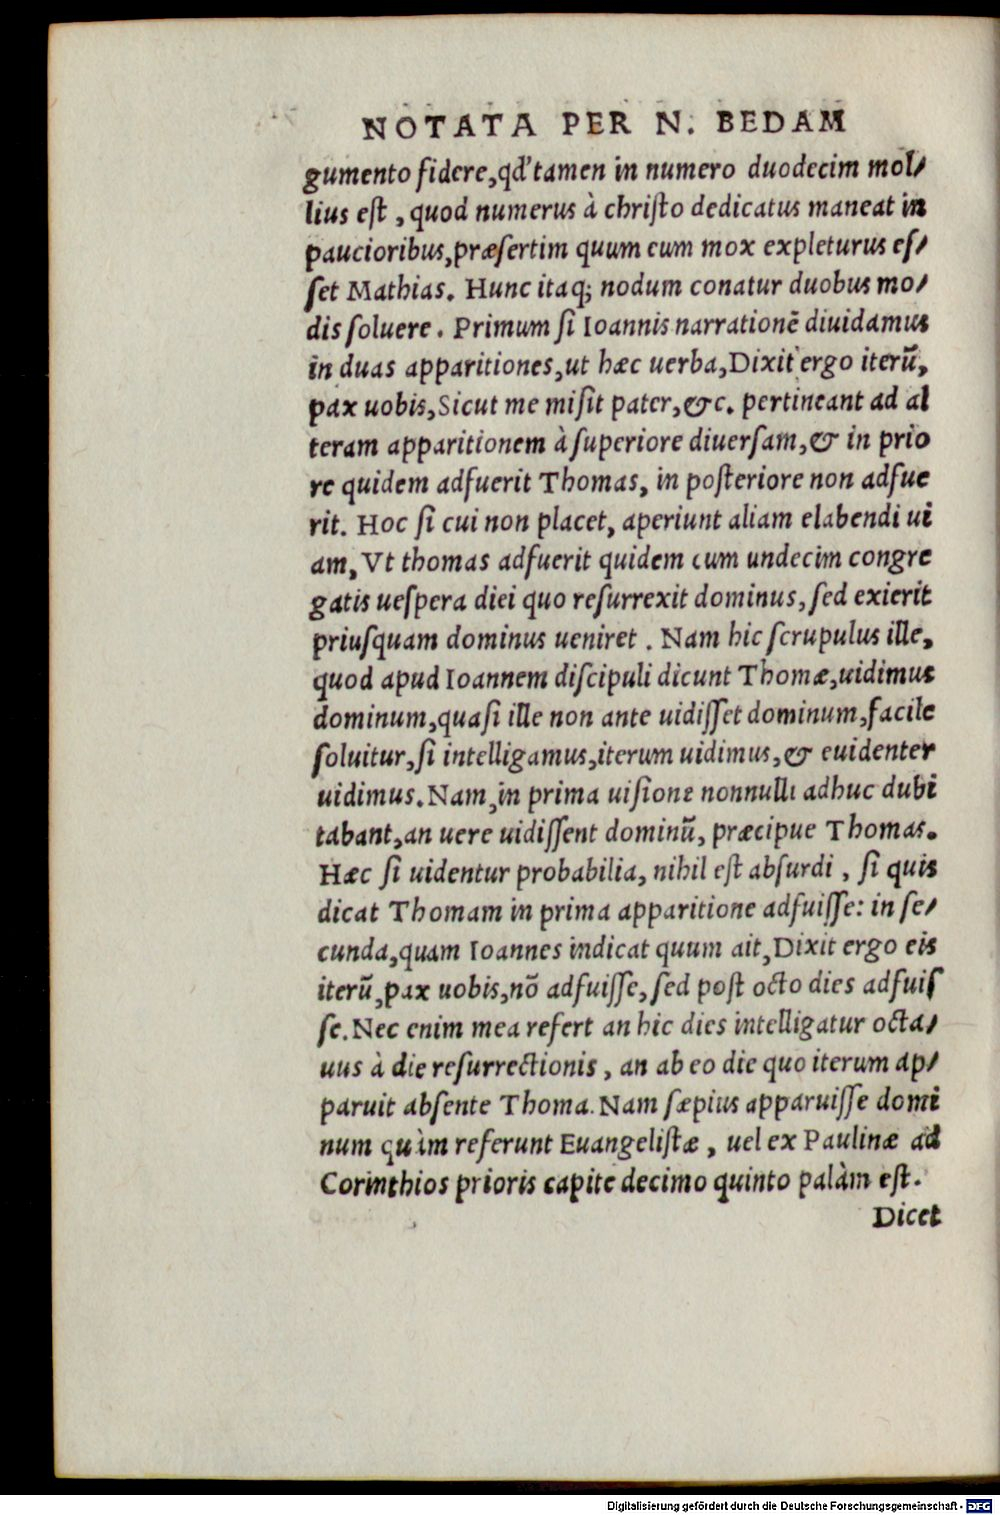 NOTATA PER N. BEDAM
gumento fidere,qd' tamen in numero duodecim mol⸗
lius eſt , quod numerus à chriſto dedicatus maneat in
paucioribus,præſertim quum eum mox expleturus eſ⸗
ſet Mathias. Hunc itaq; nodum conatur duobus mo⸗
dis ſoluere . Primum ſi Ioannis narrationẽ diuidamus
in duas apparitiones,ut hæc uerba,Dixit ergo iterũ,
pax uobis,Sicut me miſit pater,&c. pertineant ad al
teram apparitionem à ſuperiore diuerſam,& in prio
re quidem adfuerit Thomas, in poſteriore non adfue
rit. Hoc ſi cui non placet, aperiunt aliam elabendi ui
am, Vt thomas adfuerit quidem cum undecim congre
gatis ueſpera diei quo reſurrexit dominus, ſed exierit
priuſquam dominus ueniret . Nam hic ſcrupulus ille,
quod apud Ioannem diſcipuli dicunt Thomæ,uidimus
dominum,quaſi ille non ante uidiſſet dominum,facile
ſoluitur,ſi intelligamus,iterum uidimus,& euidenter
uidimus.Nam,in prima uiſione nonnulli adhuc dubi
tabant,an uere uidiſſent dominũ, præcipue Thomas.
Hæc ſi uidentur probabilia, nihil eſt abſurdi , ſi quis
dicat Thomam in prima apparitione adfuiſſe: in ſe⸗
cunda,quam Ioannes indicat quum ait,Dixit ergo eis
iterũ,pax uobis,nõ adfuiſſe, ſed poſt octo dies adfuiſ
ſe.Nec enim mea refert an hic dies intelligatur octa⸗
uus à die reſurrectionis , an ab eo die quo iterum ap⸗
paruit abſente Thoma. Nam ſæpius apparuiſſe domi
num quàm referunt Euangeliſtæ , uel ex Paulinæ ad
Corinthios prioris capite decimo quinto palàm eſt.
Dicet
Digitalisierung gefördert durch die Deutsche Forschungsgemeinschaft - DFG